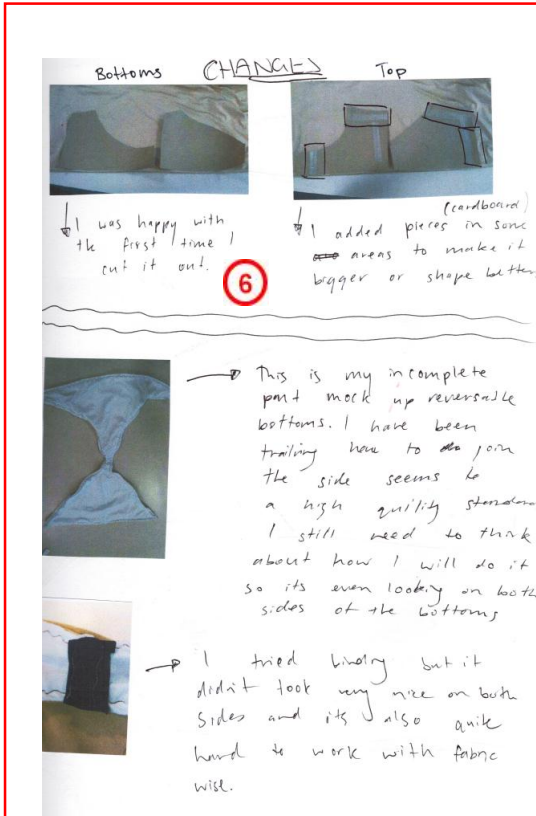 CHANGES
Bottoms
Top
I was happy with
the first time I
cut it out.
(cardboard)
I added pieces in some
areas to make it
bigger or shape better
6
This is my incomplete
pant mock up reversable
bottoms. I have been
trailing how to join
the side seems to
a high quility standard
I still need to think
about how I will do it
so its even looking on both
sides of the bottoms
I tried bindry but it
didn't look very nice on both
sides and its also quite
hard to work with fabric
wise.